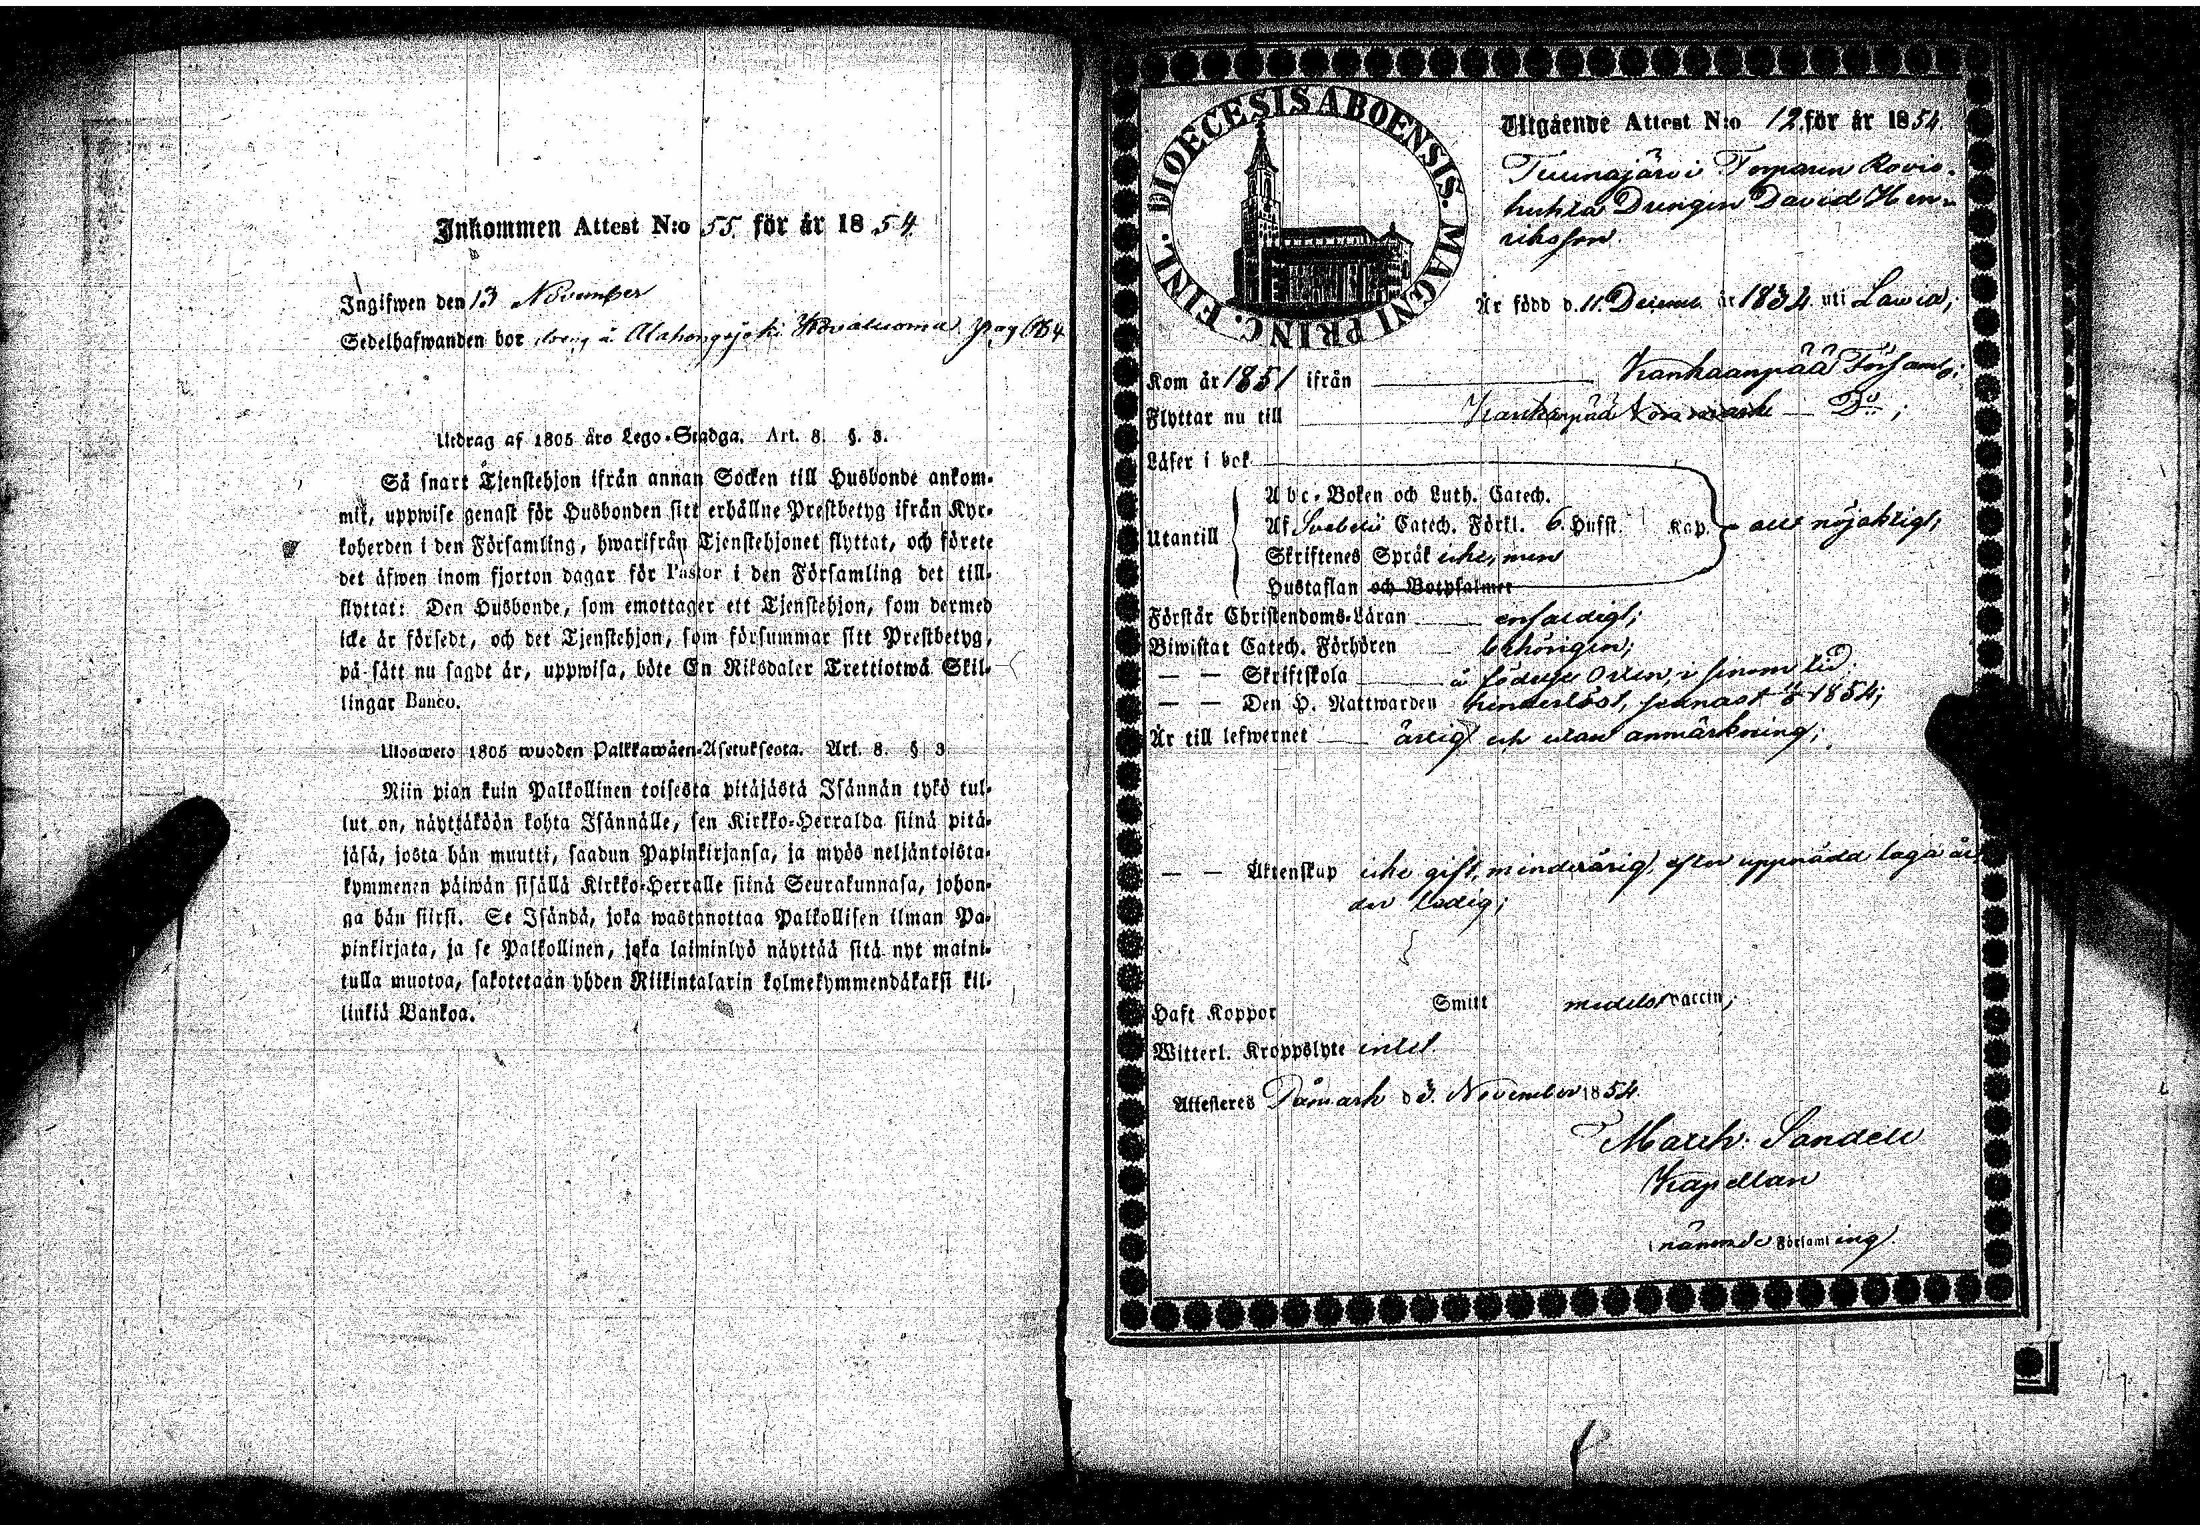 Inkommen Attest N:o 55. för år 1854.
Ingifwen den 13 November
Sedelhafwanden bor dreng å Alahongojoki Kovaluoma pag 684
Utdrag af 1805 års Lego-Stadga. Art. 8. §. 3.
Så snart Tjenstehjon ifrån annan Socken till Husbonde ankom-
mit, uppwise genast för Husbonden sitt erhållne Prestbetyg ifrån Kyr-
koherden i den Församling, hwarifrån Tjenstehjonet flyttat, och förete
det äfwen inom fjorton dagar för Pastor i den Församling det till-
flyttat: Den Husbonde, som emottager ett Tjenstehjon, som dermed
icke är försedt, och det Tjenstehjon, som försummar sitt Prestbetyg,
på sätt nu sagdt är, uppwisa, böte En Riksdaler Trettiotwå Skil-
lingar Banco.
Ulosweto 1805 wuoden Palkkawäen-Asetuksesta. Art. 8. § 3
Niin pian kuin Palkollinen toisesta pitäjästä Isännän tykö tul-
lut on, näyttäköön kohta Isännälle, sen Kirkko-Herralda siinä pitä-
jäsä, josta hän muutti, saadun Papinkirjansa, ja myös neljäntoista-
kymmenen päiwän sisällä Kirkko-Herralle siinä Seurakunnasa, johon-
ga hän siirsi. Se Isändä, joka wastanottaa Palkollisen ilman Pa-
pinkirjata, ja se Palkollinen, joka laiminlyö näyttää sitä nyt maini-
tulla muotoa, sakotetaan yhden Riikintalarin kolmekymmendäkaksi kil-
linkiä Bankoa.
DIOECESIS ABOENSIS. MAGNI PRINC. FINL.
Utgående Attest N:o 12. för år 1854.
Tuunajärvi Tomparin Rovio-
huhta Drengen David Hen-
riksson.
Är född d. 11. Decemb. år 1834. uti Lavia;
Kom år 1851 ifrån Kankaanpää Församl:
Flyttar nu till Kankaanpää D:o;
Läser i bok
Utantill
Abc-Boken och Luth. Catech.
Af Svebelii Catech. Förkl. 6. Hufst. Kap. allt nöjaktigt;
Skriftenes Språk icke, men
Hustaflan och Botpsalmer
Förstår Christendoms-Läran enfaldigt;
Biwistat Catech. Förhören behörigen;
— — Skriftskola å födelse Orten, i sinom tid.
— — Den H. Nattwarden hinderlöst, senast 1854;
Är till lefwernet ärlig och utan anmärkning;
— — Äktenskap icke gift, minderårig, efter uppnådd laga ål-
der ledig;
Haft Koppor Smitt medelst vaccin;
Witterl. Kroppslyte intet.
Attesteres Påmark d 3. November 1854.
March: Sandell
Kapellan
i nämnde Församling.